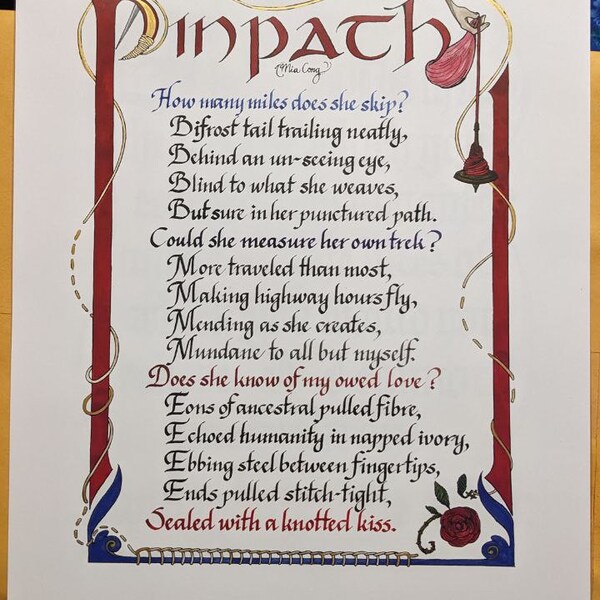 Pinpath
Mia Cong
How many miles does she skip?
Bifrost tail trailing neatly,
Behind an un-seeing eye,
Blind to what she weaves,
But sure in her punctured path.
Could she measure her own trek?
More traveled than most,
Making highway hours fly,
Mending as she creates,
Mundane to all but myself.
Does she know of my owed love?
Eons of ancestral pulled fibre,
Echoed humanity in napped ivory,
Ebbing steel between fingertips,
Ends pulled stitch-tight,
Sealed with a knotted kiss.